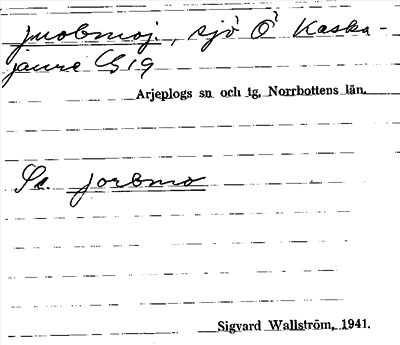 juobmoj, sjö Ö Kaska-
jaure C519
Arjeplogs sn och tg, Norrbottens län.
Sv. jorbmo
Sigvard Wallström, 1941.